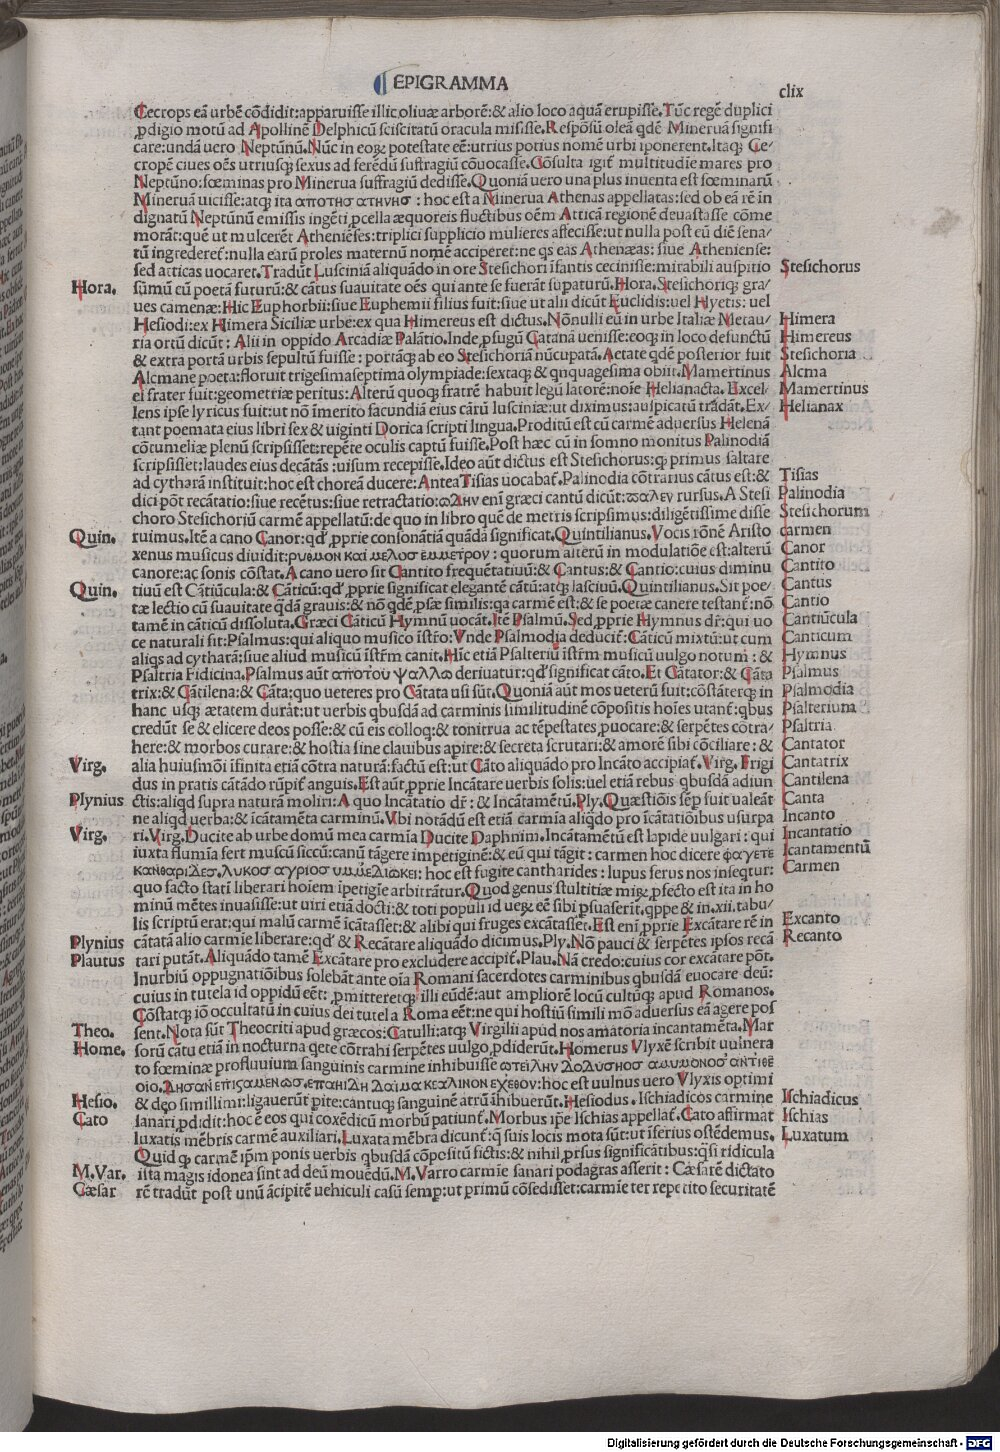 EPIGRAMMA
clix
Cecrops eā urbē cōdidit:apparuisse illic oliuæ arborē:& alio loco aquā erupisse.Tūc regē duplici
ꝓdigio motū ad Apollinē Delphicū sciscitatū oracula misisse.Respōsū oleā qdē Mineruā signifi
care:undā uero Neptūnū.Nūc in eoꝝ potestate eē:utrius potius nomē urbi īponerent.Itaqꝫ Ce/
cropē ciues oēs utriusqꝫ sexus ad ferēdū suffragiū cōuocasse.Cōsulta igit̄ multitudīe mares pro
Neptūno:fœminas pro Minerua suffragiū dedisse.Quoniā uero una plus inuenta est fœminarū
Mineruā uicisse:atqꝫ ita αποτησ ατηνησ : hoc est a Minerua Athenas appellatas:sed ob eā rē in
dignatū Neptūnū emissis ingēti ꝓcella æquoreis fluctibus oēm Atticā regionē deuastasse cōme
morāt:quē ut mulcerēt Atheniēses:triplici supplicio mulieres affecisse:ut nulla post eū diē sena/
tū ingrederet̄:nulla earū proles maternū nomē acciperet:ne qs eas Athenæas: siue Atheniense:
sed atticas uocaret.Tradūt Lusciniā aliquādo in ore Stesichori īfantis cecinisse:mirabili auspitio
Stesichorus
Hora.
sūmū eū poetā futurū:& cātus suauitate oēs qui ante se fuerāt supaturū.Hora.Stesichoriqꝫ gra/
ues camenæ:Hic Euphorbii:siue Euphemii filius fuit:siue ut alii dicūt Euclidis:uel Hyetis: uel
Hesiodi:ex Himera Siciliæ urbe:ex qua Himereus est dictus.Nōnulli eū in urbe Italiæ Metau/
Himera
ria ortū dicūt: Alii in oppido Arcadiæ Palātio.Inde ꝓfugū Catanā uenisse:eoqꝫ in loco defunctū
Himereus
& extra portā urbis sepultū fuisse : portāqꝫ ab eo Stesichoriā nūcupatā.Aetate qdē posterior fuit
Stesichoria
Alcmane poeta:floruit trigesimaseptima olympiade:sextaqꝫ & qnquagesima obiit.Mamertinus
Alcma
el frater fuit:geometriæ peritus:Alterū quoqꝫ fratrē habuit legū latorē:noīe Helianacta. Excel/
Mamertinus
lens ipse lyricus fuit:ut nō īmerito facundiā eius cārū lusciniæ:ut diximus:auspicatū trādāt.Ex/
Helianax
tant poemata eius libri sex & uiginti Dorica scripti lingua.Proditū est cū carmē aduersus Helenā
cōtumeliæ plenū scripsisset:repēte oculis captū fuisse.Post hæc cū in somno monitus Palinodiā
scripsisset:laudes eius decātās :uisum recepisse.Ideo aūt dictus est Stesichorus:qꝫ primus saltare
ad cytharā instituit:hoc est choreā ducere:AnteaTisias uocabat̄.Palinodia cōtrarius cātus est:&
Tisias
dici pōt recātatio:siue recētus:siue retractatio:ωΔην enī græci cantū dicūt:ϖαλεν rursus.A Stesi
Palinodia
choro Stesichoriū carmē appellatū:de quo in libro quē de metris scripsimus:diligētissime disse
Stesichorum
Quin.
ruimus.Itē a cano Canor:qd̄ ꝓprie cōsonātiā quādā significat.Quintilianus.Vocis rōnē Aristo
carmen
xenus musicus diuidit:ρυθμον και μελοσ εμμετρον : quorum alterū in modulatiōe est:alterū
Canor
canore:ac sonis cōstat.A cano uero sit Cantito frequētatiuū:& Cantus:& Cantio:cuius diminu
Cantito
Quin.
tiuū est Cātiūcula:& Cāticū:qd̄ ꝓprie significat elegantē cātū:atqꝫ lasciuū.Quintilianus.Sit poe/
Cantus
tæ lectio cū suauitate qdā grauis:& nō qdē ꝓsæ similis:qa carmē est:& se poetæ canere testant̄:nō
Cantio
tamē in cāticū dissoluta.Græci Cāticū Hymnū uocāt.Itē Psalmū.Sed ꝓprie Hymnus dr̄:qui uo
Cantiūcula
ce naturali sit:Psalmus:qui aliquo musico īstr̄o:Vnde Psalmodia deducit̄:Cāticū mixtū:ut cum
Canticum
aliqs ad cytharā:siue aliud musicū īstr̄m canit.Hic etiā Psalteriū īstr̄m musicū uulgo notum : &
Hymnus
Psaltria Fidicina.Psalmus aūt αποτου ψαλλω deriuatur:qd̄ significat cāto.Et Cātator:& Cāta
Psalmus
trix:& Cātilena:& Cāta:quo ueteres pro Cātata usi sūt.Quoniā aūt mos ueterū fuit:cōstāterqꝫ in
Psalmodia
hanc usqꝫ ætatem durāt:ut uerbis qbusdā ad carminis similitudinē cōpositis hoīes utant̄:qbus
Psalterium
credūt se & elicere deos posse:& cū eis colloq:& tonitrua ac tēpestates ꝓuocare:& serpētes cōtra/
Psaltria
here:& morbos curare:& hostia sine clauibus apire:& secreta scrutari:& amorē sibi cōciliare : &
Cantator
Virg.
alia huiusmōi īfinita etiā cōtra naturā:factū est:ut Cāto aliquādo pro Incāto accipiat̄.Virg. Frigi
Cantatrix
dus in pratis cātādo rūpit̄ anguis.Est aūt ꝓprie Incātare uerbis solis:uel etiā rebus qbusdā adiun
Cantilena
Plynius
ctis:aliqd supra naturā moliri:A quo Incātatio dr̄: & Incātamētū.Ply.Quæstiōis sēp fuit ualeāt
Canta
ne aliqd uerba:& īcātamēta carminū.Vbi notādū est etiā carmia aliqdo pro īcātatiōibus usurpa
Incanto
Virg.
ri.Virg.Ducite ab urbe domū mea carmīa Ducite Daphnim.Incātamētū est lapide uulgari : qui
Incantatio
iuxta flumīa fert muscū siccū:canū tāgere īmpetiginē:& eū qui tāgit : carmen hoc dicere φαγετε
Icantamentū
κανθαριΔεσ.λυκοσ αγριοσ υμμεΔιωκει: hoc est fugite cantharides : lupus ferus nos inseqtur:
Carmen
quo facto statī liberari hoīem īpetigīe arbitrātur.Quod genus stultitiæ miꝝ ꝓfecto est ita in ho
minū mētes inuasisse:ut uiri etiā docti:& toti populi id ueꝝ eē sibi ꝑsuaserīt.qppe & in.xii.tabu/
lis scriptū erat:qui malū carmē īcātasset:& alibi qui fruges excātasset.Est enī ꝓprie Excātare rē in
Excanto
Plynius
cātatā alio carmīe liberare:qd̄ & Recātare aliquādo dicimus.Ply.Nō pauci & serpētes ipsos recā
Recanto
Plautus
tari putāt.Aliquādo tamē Excātare pro excludere accipit̄.Plau.Nā credo:cuius cor excātare pōt.
Inurbiū oppugnatiōibus solebāt ante oīa Romani sacerdotes carminibus qbusdā euocare deū:
cuius in tutela id oppidū eēt: ꝓmitteretqꝫ illi eūdē:aut ampliorē locū cultūqꝫ apud Romanos.
Cōstatqꝫ iō occultatū in cuius dei tutela Roma eēt:ne qui hostiū simili mō aduersus eā agere pos
Theo.
sent.Nota sūt Theocriti apud græcos:Catulli:atqꝫ Virgilii apud nos amatoria incantamēta.Mar
Home.
sorū cātu etiā in nocturna qete cōtrahi serpētes uulgo ꝓdiderūt.Homerus Vlyxē scribit uulnera
to fœminæ profluuium sanguinis carmine inhibuisse ωτειλην Δοδυσησσ αμυμονοσ αντιθε
οιο.Δησαν επιςαμενωσ.επαηιΔη Δαιμα κεαλινον εχεθον:hoc est uulnus uero Vlyxis optimi
Hesio.
& deo simillimi:ligauerūt ꝑite:cantuqꝫ sanguinē atrū īhibuerūt.Hesiodus . Ischiadicos carmine
Ischiadicus
Cato
sanari ꝓdidit:hoc ē eos qui coxēdicū morbū patiunt̄.Morbus ip̄e Ischias appellat̄.Cato affirmat
Ischias
luxatis mēbris carmē auxiliari.Luxata mēbra dicunt̄:q̄ suis locis mota sūt:ut īferius ostēdemus.
Luxatum
Quid qꝫ carmē ip̄m ponis uerbis qbusdā cōpositū fictis:& nihil ꝓrsus significātibus:q̄si ridicula
M.Var.
ista magis idonea sint ad deū mouēdū.M.Varro carmīe sanari podagras asserit : Cæsarē dictato
Cæsar
rē tradūt post unū ācipitē uehiculi casū semp:ut primū cōsedisset:carmīe ter repetito securitatē
Digitalisierung gefördert durch die Deutsche Forschungsgemeinschaft - DFG